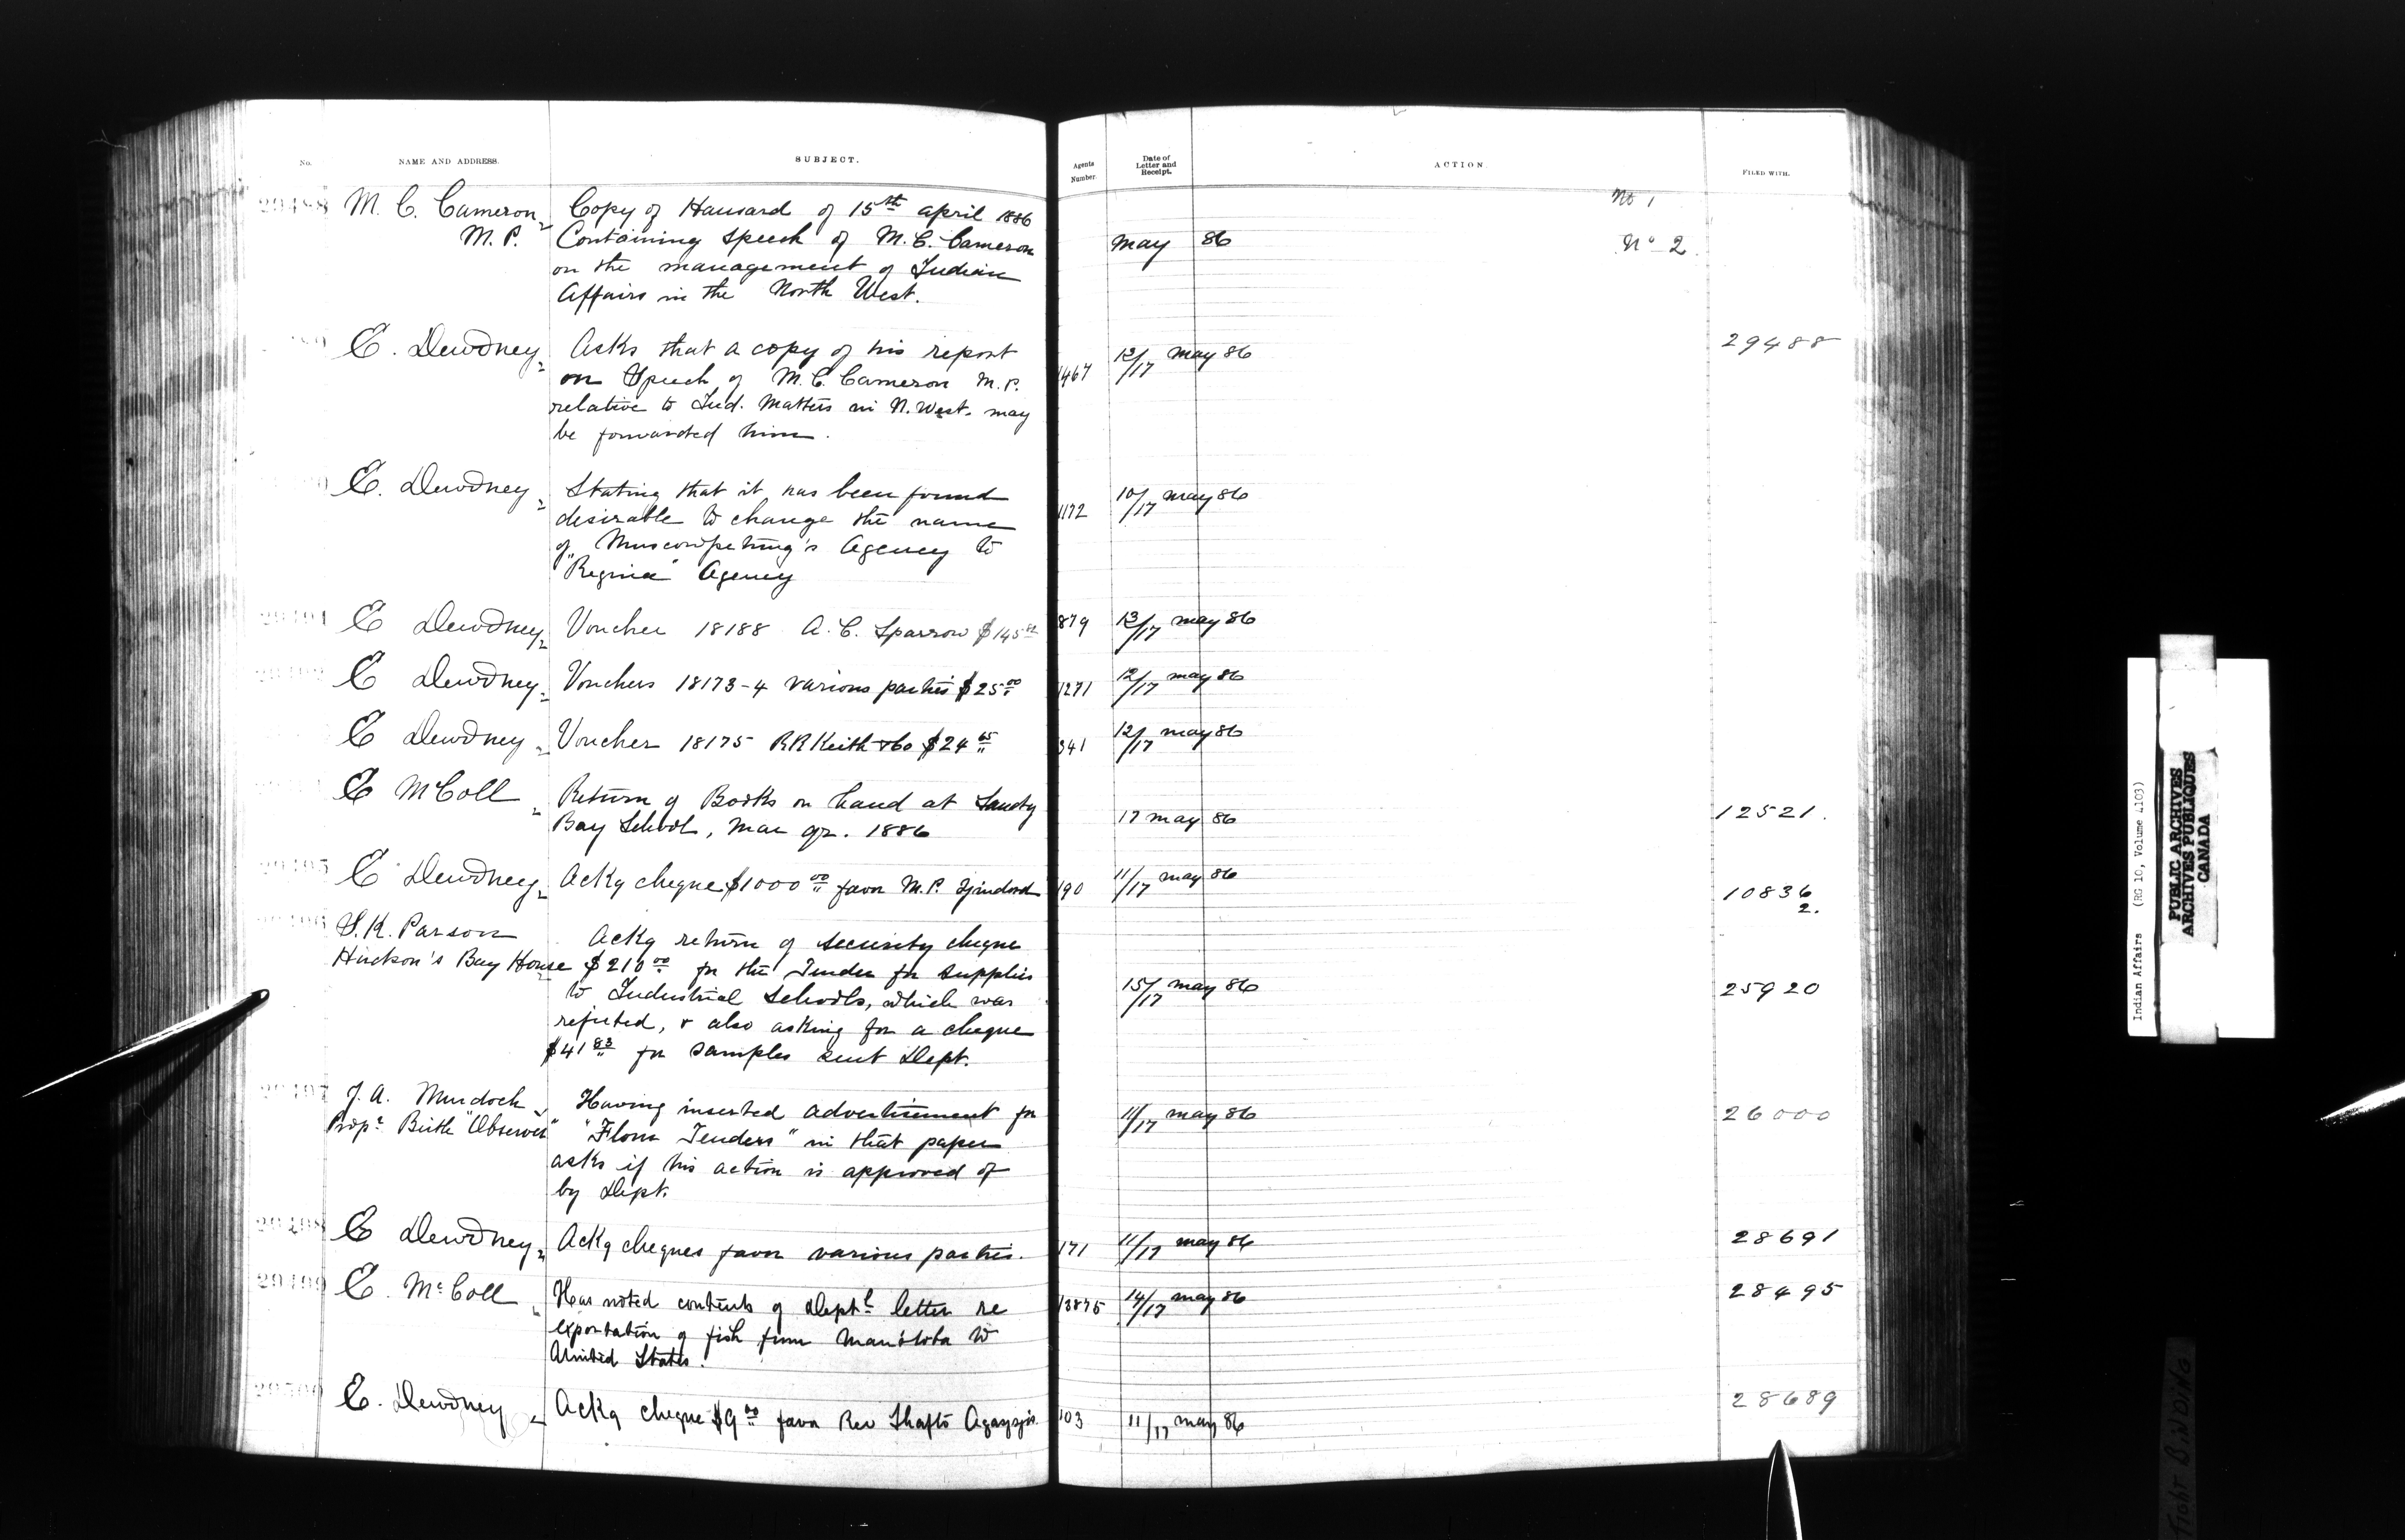 No.
NAME AND ADDRESS.
SUBJECT.
Agents Number.
Date of Letter and Receipt.
ACTION.
FILED WITH.
29488 M. C. Cameron Copy of Hansard of 15th april 1886 No 1
M.P. Containing Speech of M. C. Cameron may 86 No 2.
on the management of Indian
Affairs in the North West.
E. Dewdney Asks that a copy of his report 1467 12/17 may 86 29488
on Speech of M. C. Cameron M.P.
relative to Ind. Matters in N. West. may
be forwarded him.
E. Dewdney Stating that it has been found 1172 10/17 may 86
desirable to change the name
of Muscowpetung's Agency to
"Regina" Agency
29491 E Dewdney Voucher 18188 A. C. Sparrow $145 879 13/17 may 86
E Dewdney Vouchers 18173-4 various parties $25.00 1271 12/17 may 86
E Dewdney Voucher 18175 R R Keith & Co $24 341 12/17 may 86
E McColl Return of Books on hand at Sandy 17 may 86 12521.
Bay School, Mar qr. 1886
29495 E Dewdney Ackg cheque $1000.00 favor M. P. 190 11/17 may 86 10836
2.
S. K. Parson Ackg return of security cheque
Hudson's Bay House $210.00 for the Tender for supplies 15/17 may 86 25920
to Industrial Schools, which was
refuted, & also asking for a cheque
$41.83 for samples sent Dept.
29497 J. A. Murdock Having inserted advertisement for 11/17 may 86 26000
Prop. Birtle "Observer" "Flour Tenders" in that paper
asks if his action is approved of
by Dept.
29498 E Dewdney Ackg cheques favor various parties. 171 11/17 may 86 28691
29499 E. McColl Has noted contents of Deptl letter re 13875 14/17 may 86 28495
exportation of fish from Manitoba to
United States.
29500 E. Dewdney Ackg cheque $9.00 favor Rev Shafto Agassiz 103 11/17 may 86 28689
Indian Affairs (RG 10, Volume 4103)
PUBLIC ARCHIVES
ARCHIVES PUBLIQUES
CANADA
Tight BINDING